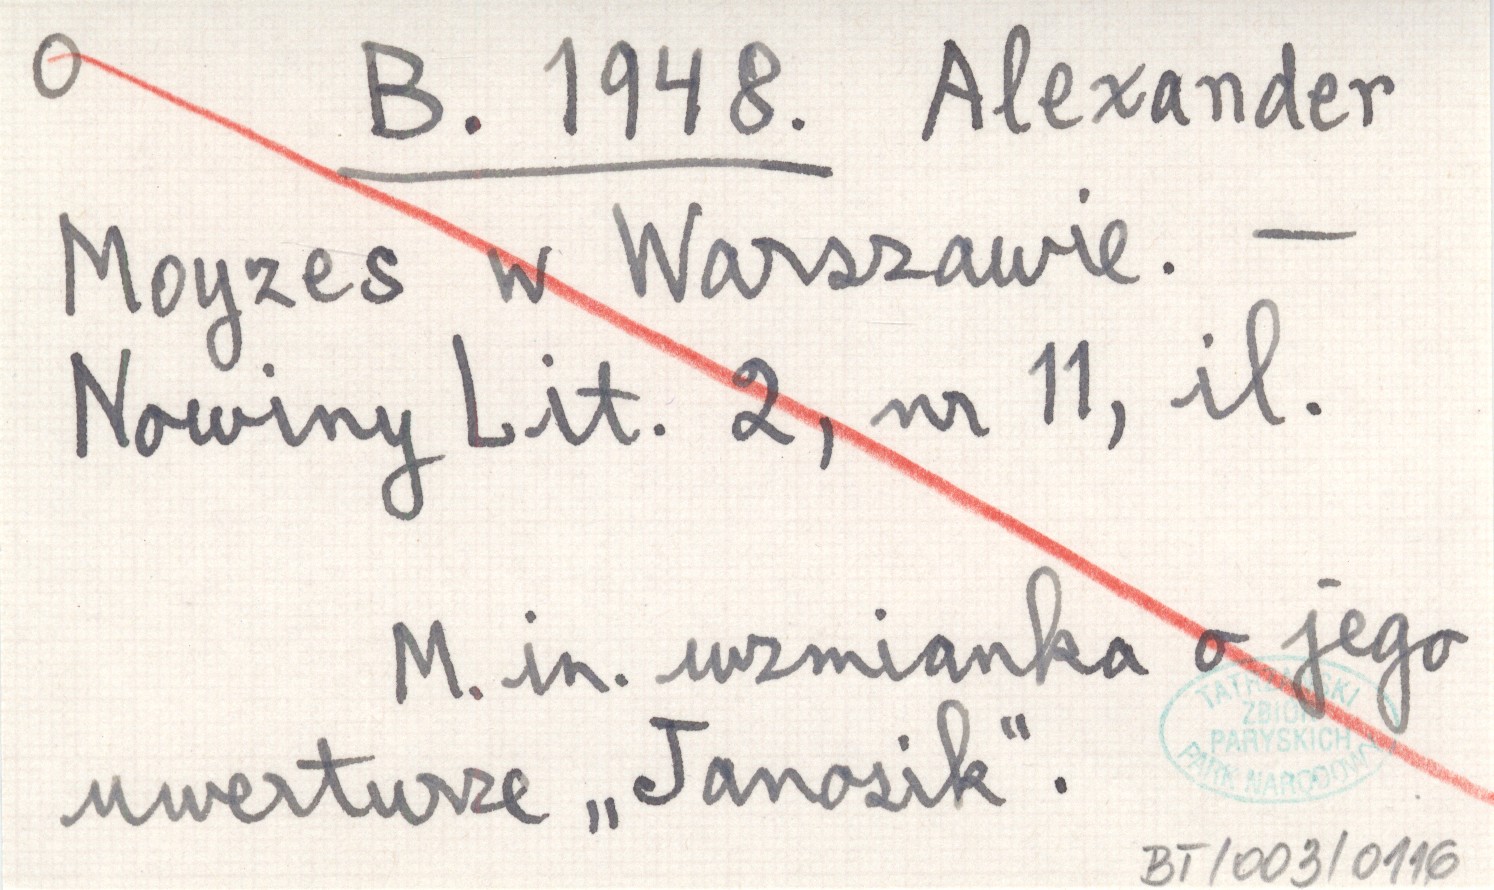 O B. 1948. Alexander
Moyzes w Warszawie. —
Nowiny Lit. 2, nr 11, il.
M. in. wzmianka o jego
uwerturze „Janosik".
TATRZAŃSKI
ZBIOR
PARYSKICH
PARK NARODOWY
BT/003/0116